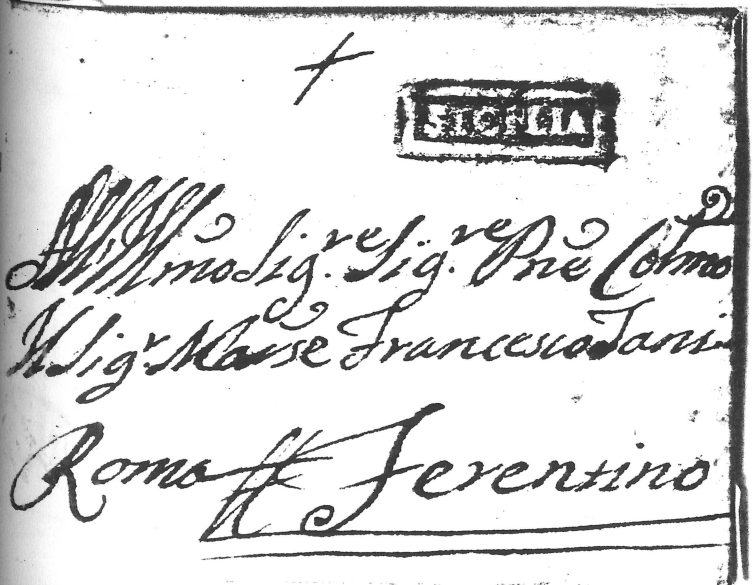 SICILIA
All Illmo Sig.re Sig.re Pne Colmo
Il Sig.r Marse Francesco Tani
Roma Ferentino